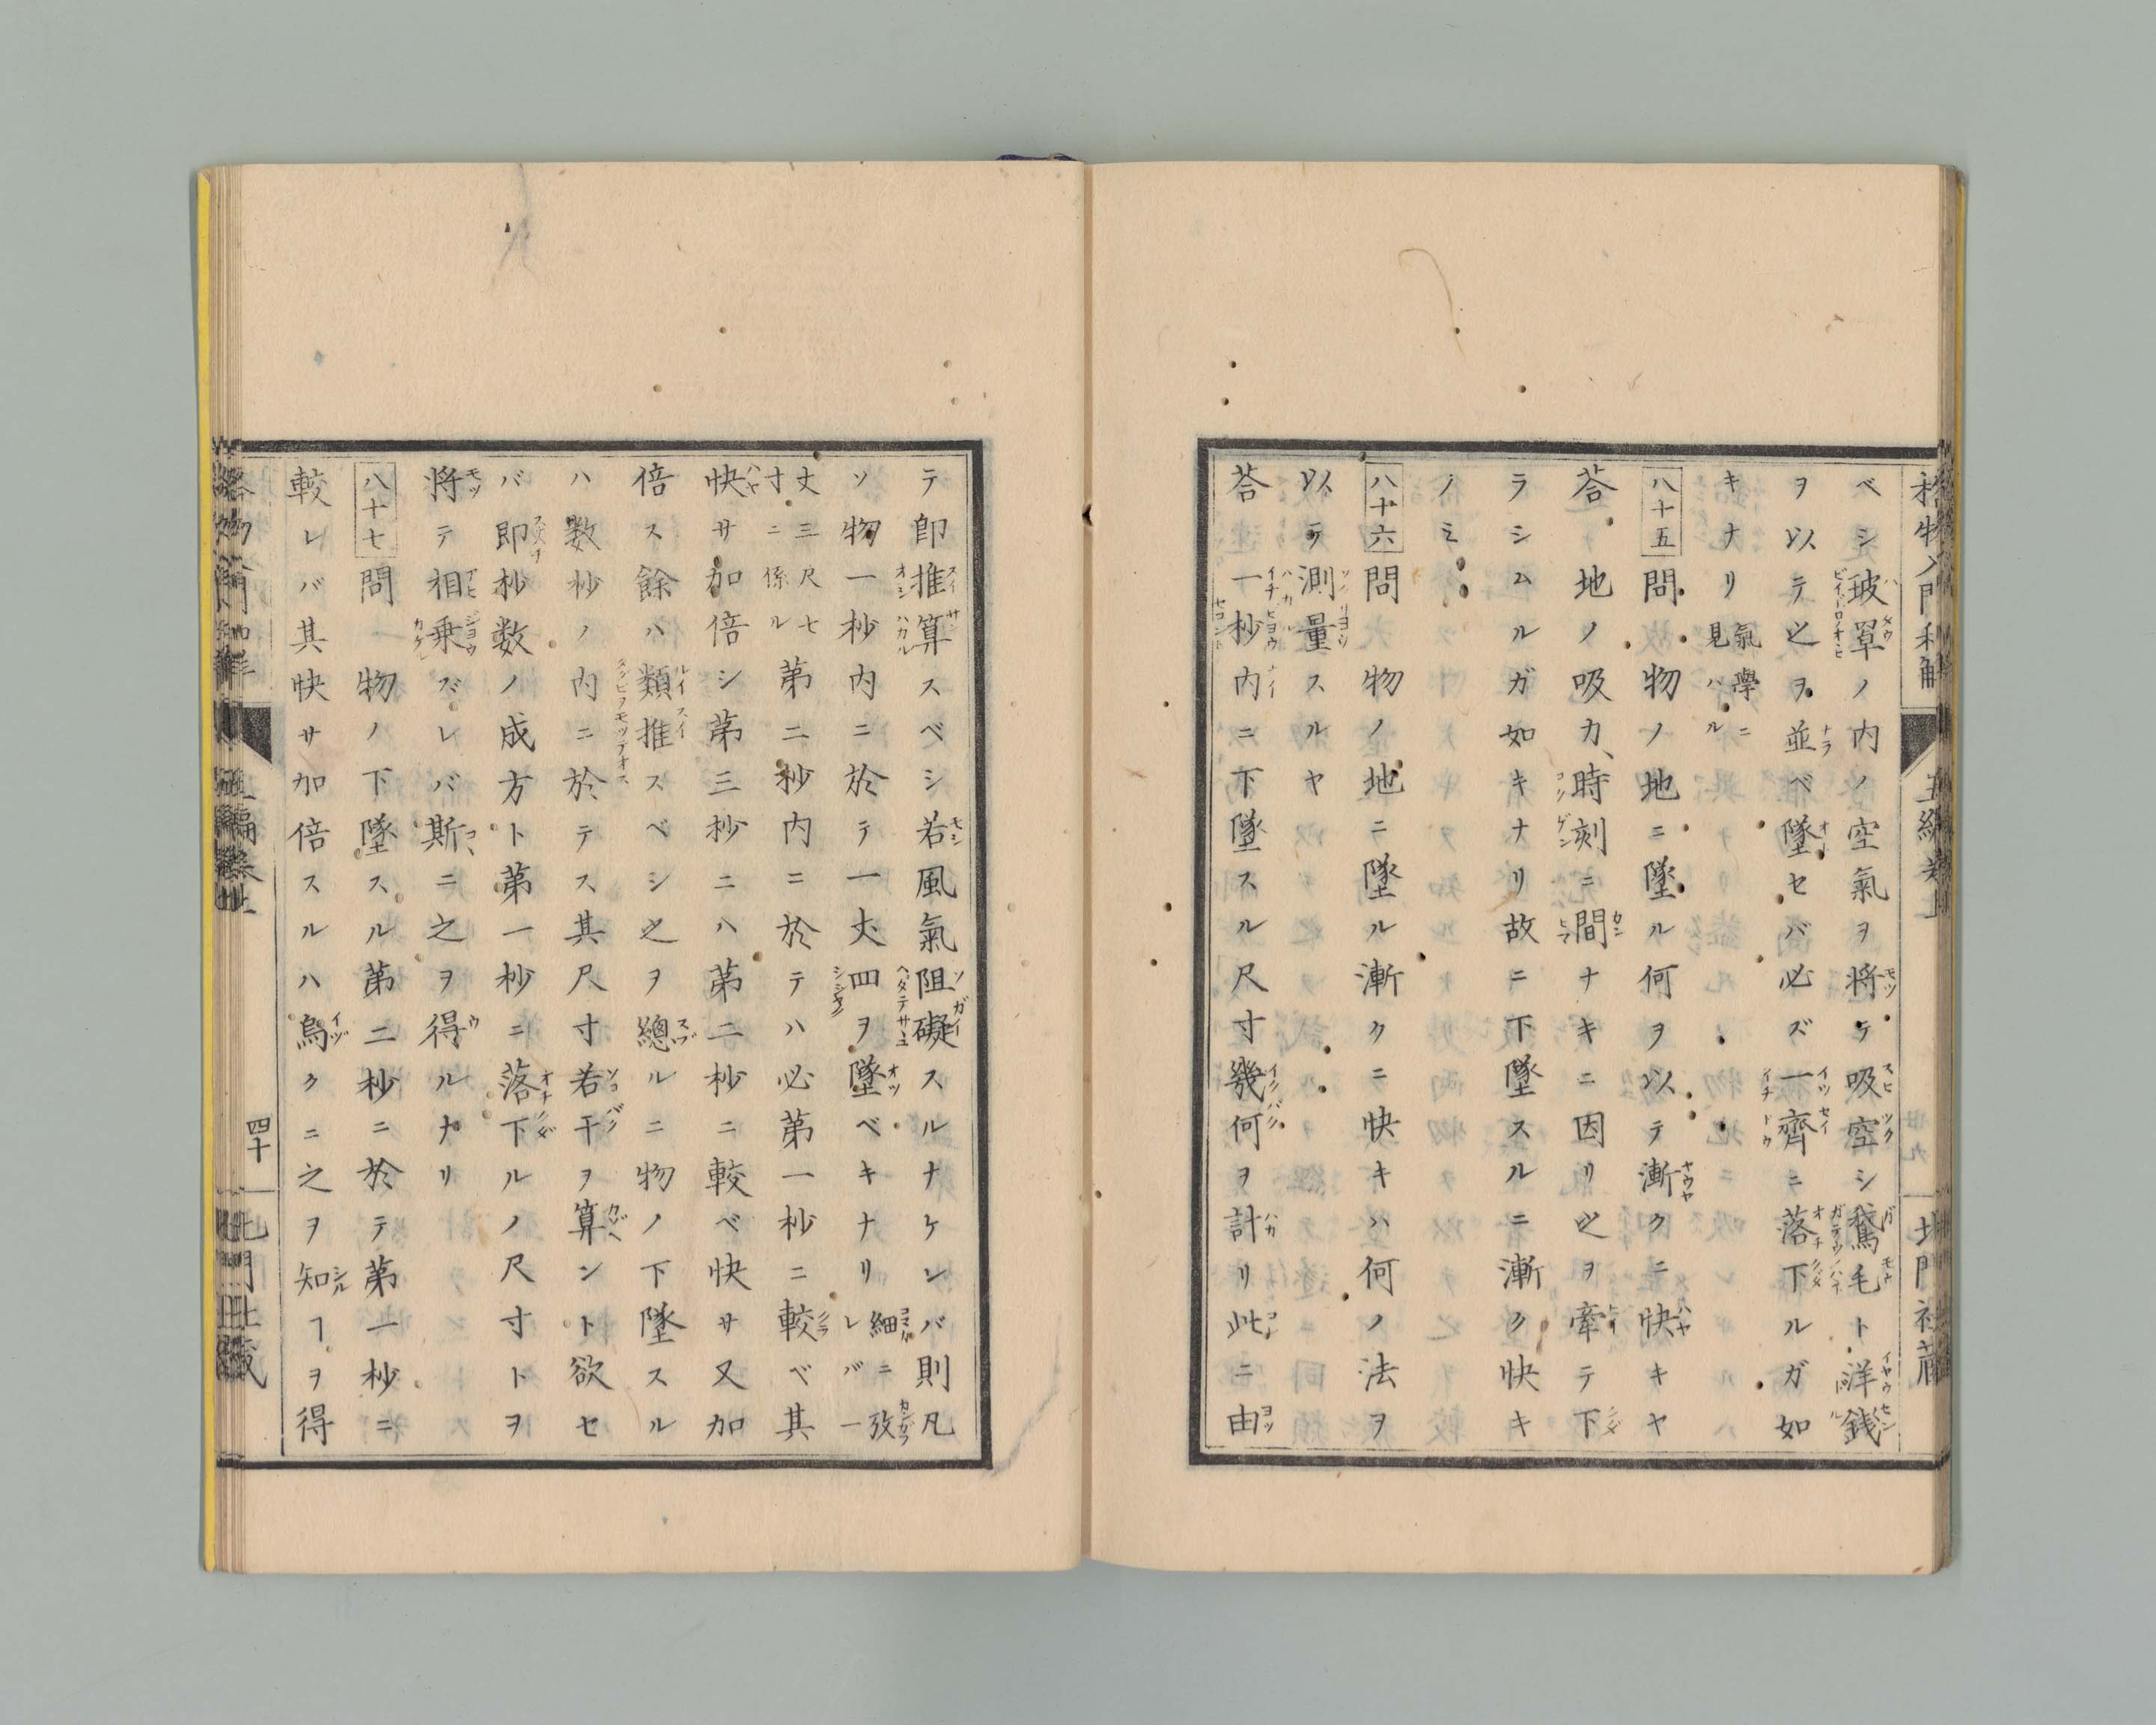 格物入門和解
五編巻上
北門社蔵
ベシ玻罩ノ内ノ空氣ヲ将テ吸空シ鵞毛ト洋銭
ヲ以テ之ヲ並ベ墜セバ必ズ一齊ニ落下ルガ如
キナリ氣學ニ見ハル
八十五問 物ノ地ニ墜ル何ヲ以テ漸クニ快キヤ
荅 地ノ吸力、時刻ニ間ナキニ因リ之ヲ牽テ下
ラシムルガ如キナリ故ニ下墜スルニ漸ク快キ
ノミ
八十六問 物ノ地ニ墜ル漸クニ快キハ何ノ法ヲ
以テ測量スルヤ
荅 一杪内ニ下墜スル尺寸幾何ヲ計リ此ニ由
テ卽推算スベシ若風氣阻礙スルナケレバ則凡
ソ物一杪内ニ於テ一丈四ヲ墜ベキナリ細ニ攷レバ一
丈三尺七寸ニ係ル第二杪内ニ於テハ必第一杪ニ較ベ其
快サ加倍シ第三杪ニハ第二杪ニ較ベ快サ又加
倍ス餘ハ類推スベシ之ヲ總ルニ物ノ下墜スル
ハ数杪ノ内ニ於テス其尺寸若干ヲ算ント欲セ
バ即杪数ノ成方ト第一杪ニ落下ルノ尺寸トヲ
將テ相乗ズレバ斯ニ之ヲ得ルナリ
八十七問 物ノ下墜スル第二杪ニ於テ第一杪ニ
較レバ其快サ加倍スルハ烏クニ之ヲ知ヿヲ得
格物入門和解
五編巻上
四十
北門社蔵